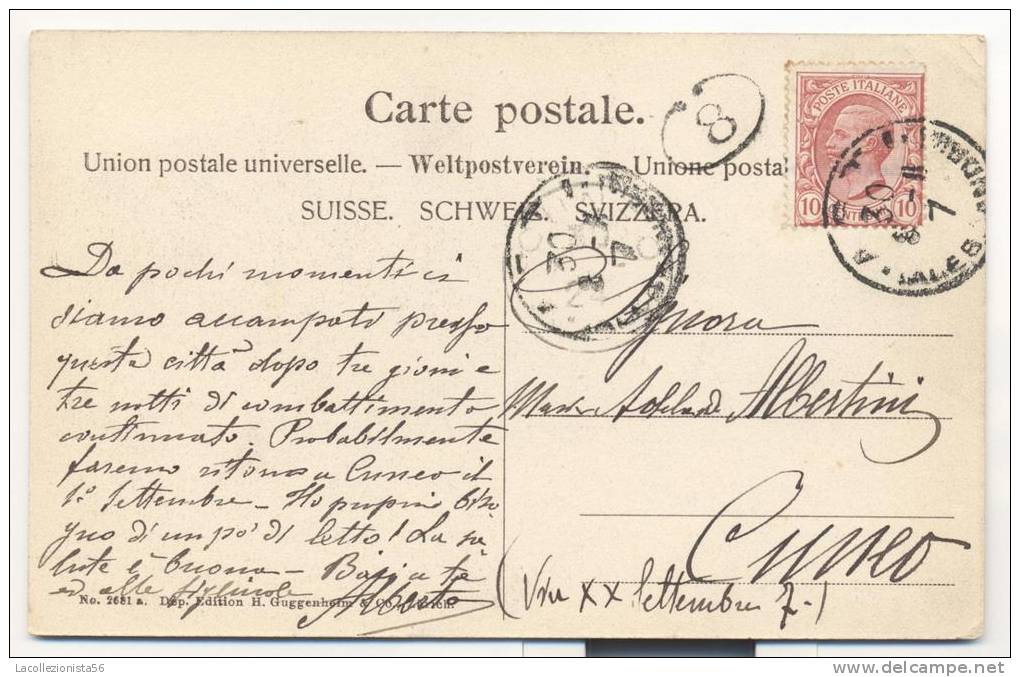 Carte postale.
Union postale universelle. — Weltpostverein. — Unione postal
SUISSE. SCHWEIZ. SVIZZERA.
POSTE ITALIANE
10 10
8
Da pochi momenti ci
siamo accampati presso
questa città dopo tre giorni e
tre notti di combattimento
continuato. Probabilmente
faremo ritorno a Cuneo il
1° Settembre – Ho pur biso
gno di un po' di letto! La sa
lute è buona – Baci a te
ed alle figliuole
Alberto
gnora
Albertini
Cuneo
(Via XX Settembre 7)
No. 2681 a. Dép. Edition H. Guggenheim & Co.
Lacollezionista56
delcampe.net